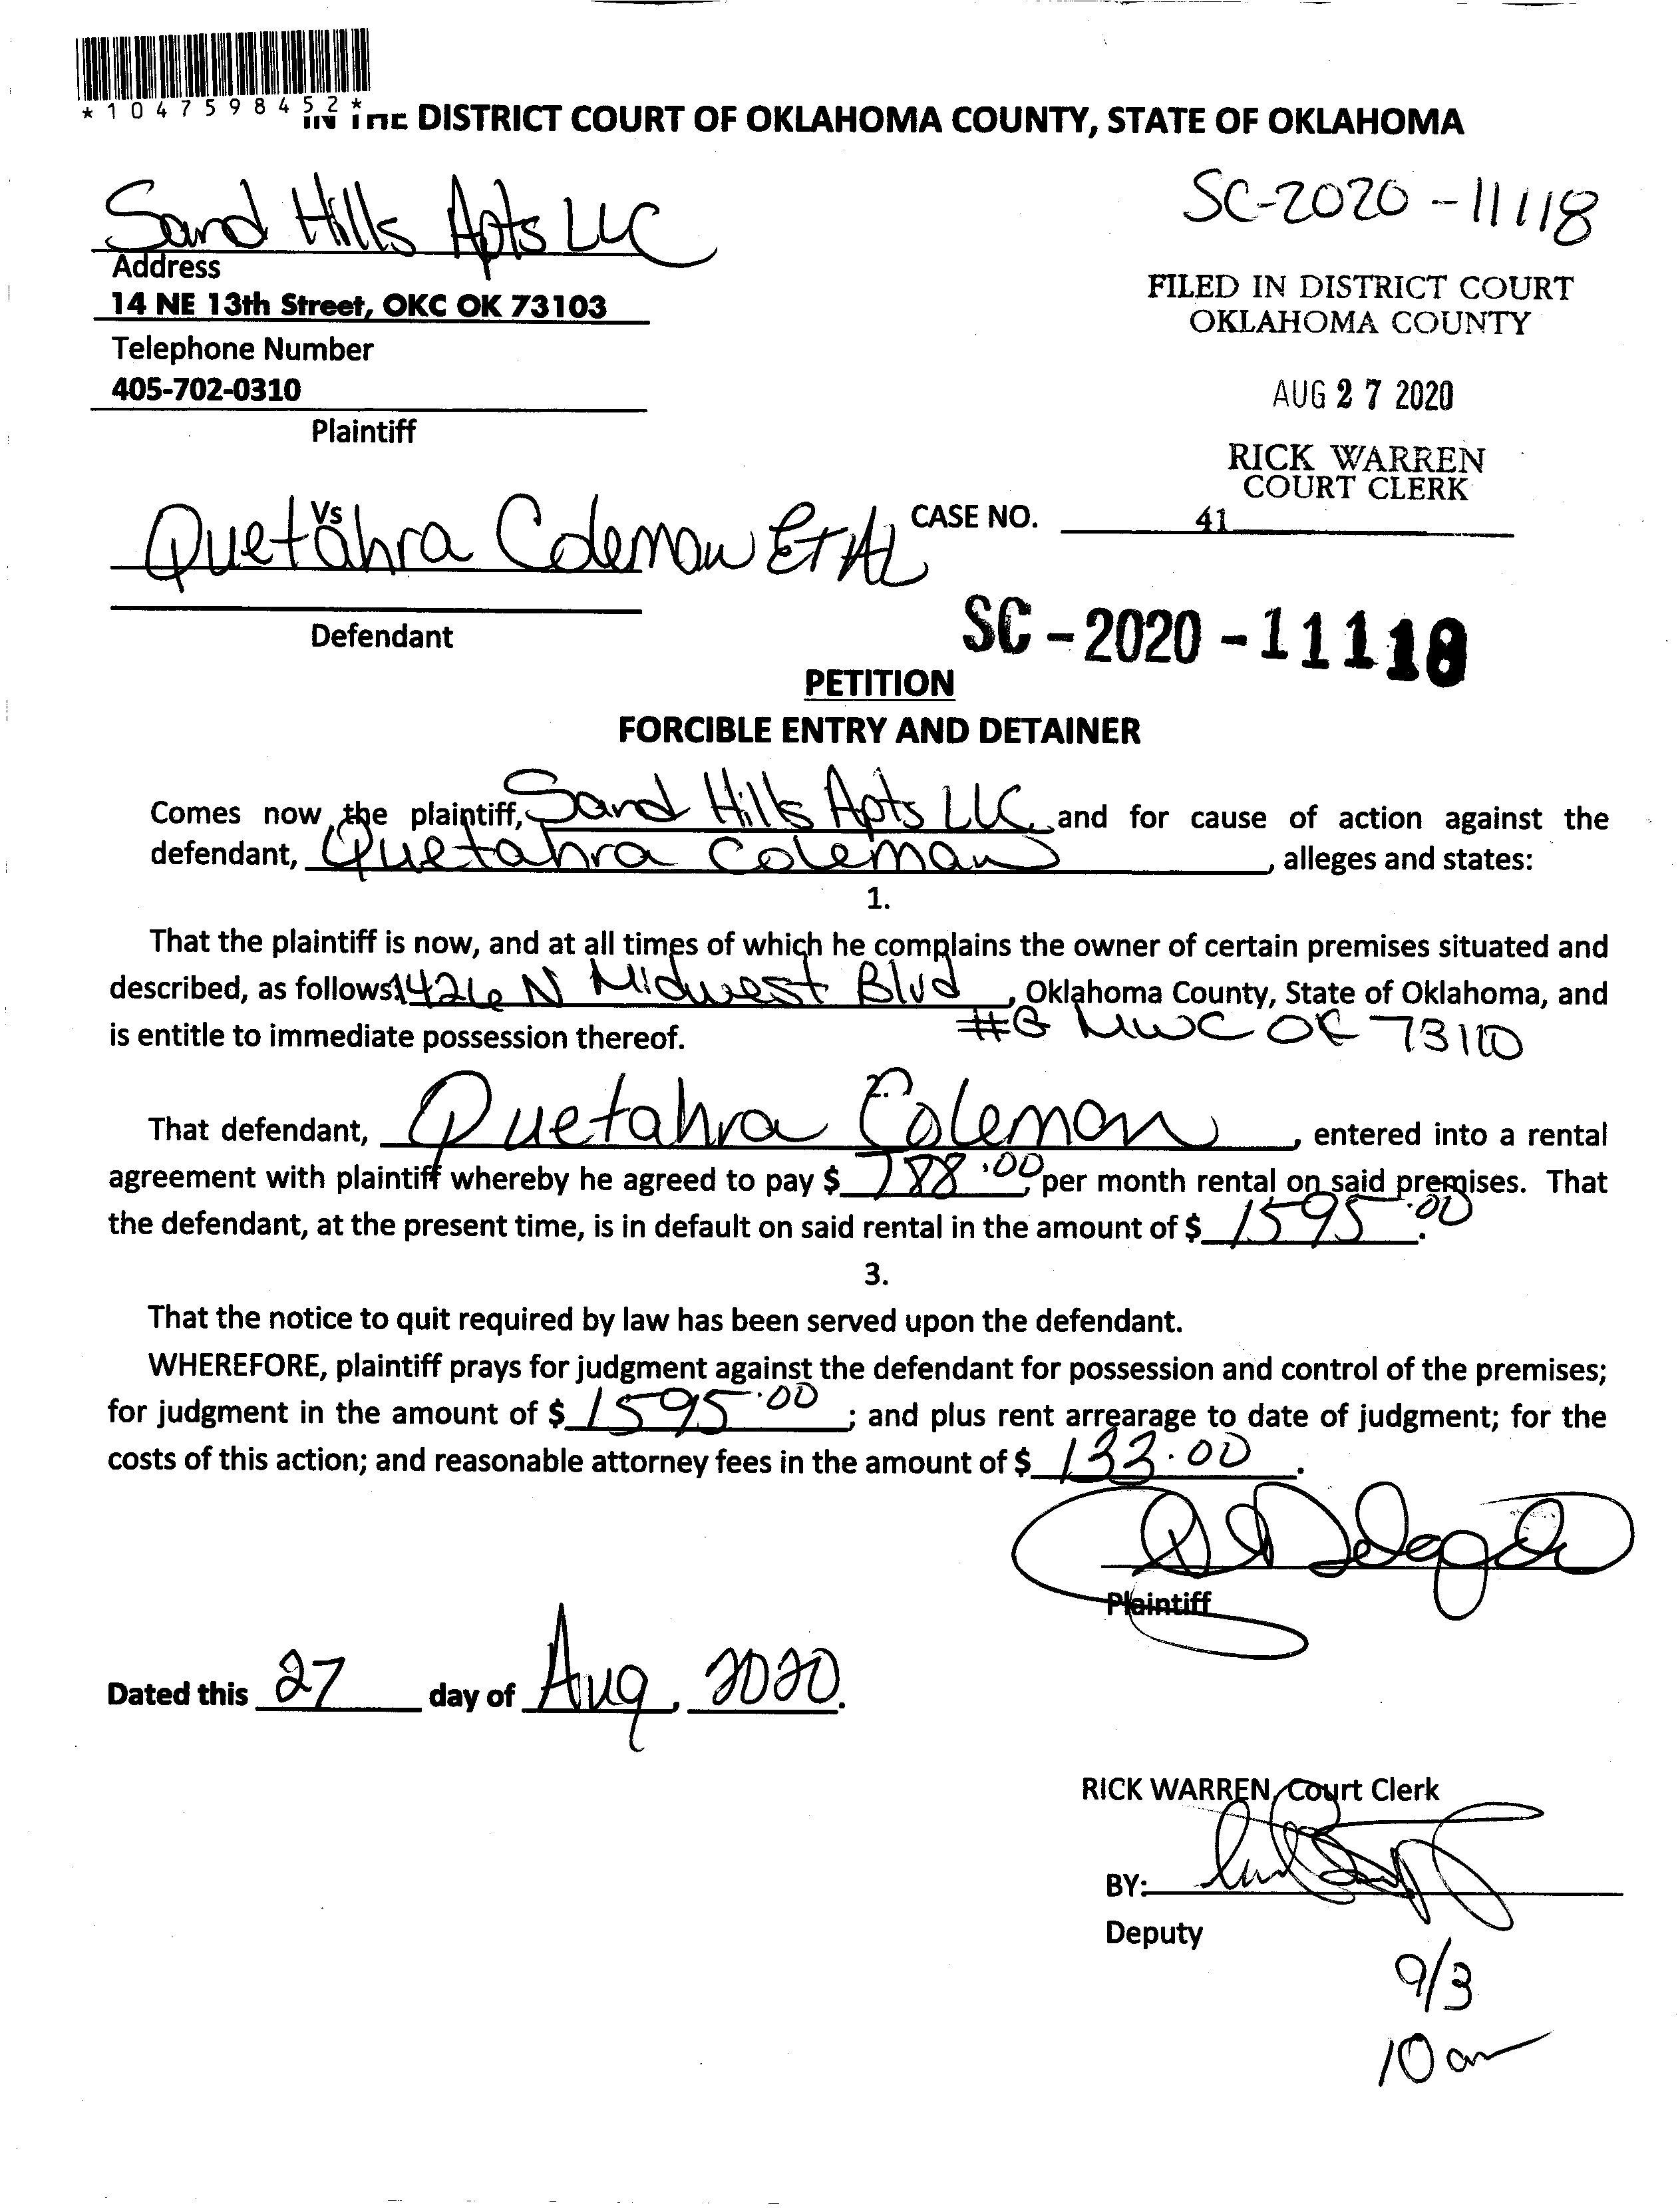 *1047598452*
IN THE DISTRICT COURT OF OKLAHOMA COUNTY, STATE OF OKLAHOMA
Sand Hills Apts LLC
SC-2020-11118
Address
14 NE 13th Street, OKC OK 73103
Telephone Number
405-702-0310
Plaintiff
FILED IN DISTRICT COURT
OKLAHOMA COUNTY
AUG 27 2020
RICK WARREN
COURT CLERK
Vs
CASE NO.
41
Quetahra Coleman Et Al
Defendant
SC-2020-11118
PETITION
FORCIBLE ENTRY AND DETAINER
Comes now the plaintiff, Sand Hills Apts LLC, and for cause of action against the
defendant, Quetahra Coleman, alleges and states:
1.
That the plaintiff is now, and at all times of which he complains the owner of certain premises situated and
described, as follows: 1426 N Midwest Blvd, Oklahoma County, State of Oklahoma, and
is entitle to immediate possession thereof. # MWC OK 73110
2.
That defendant, Quetahra Coleman, entered into a rental
agreement with plaintiff whereby he agreed to pay $ 788.00, per month rental on said premises. That
the defendant, at the present time, is in default on said rental in the amount of $ 1595.00.
3.
That the notice to quit required by law has been served upon the defendant.
WHEREFORE, plaintiff prays for judgment against the defendant for possession and control of the premises;
for judgment in the amount of $ 1595.00; and plus rent arrearage to date of judgment; for the
costs of this action; and reasonable attorney fees in the amount of $ 133.00.
Plaintiff
Dated this 27 day of Aug, 2020.
RICK WARREN, Court Clerk
BY:
Deputy
9/3
10 am